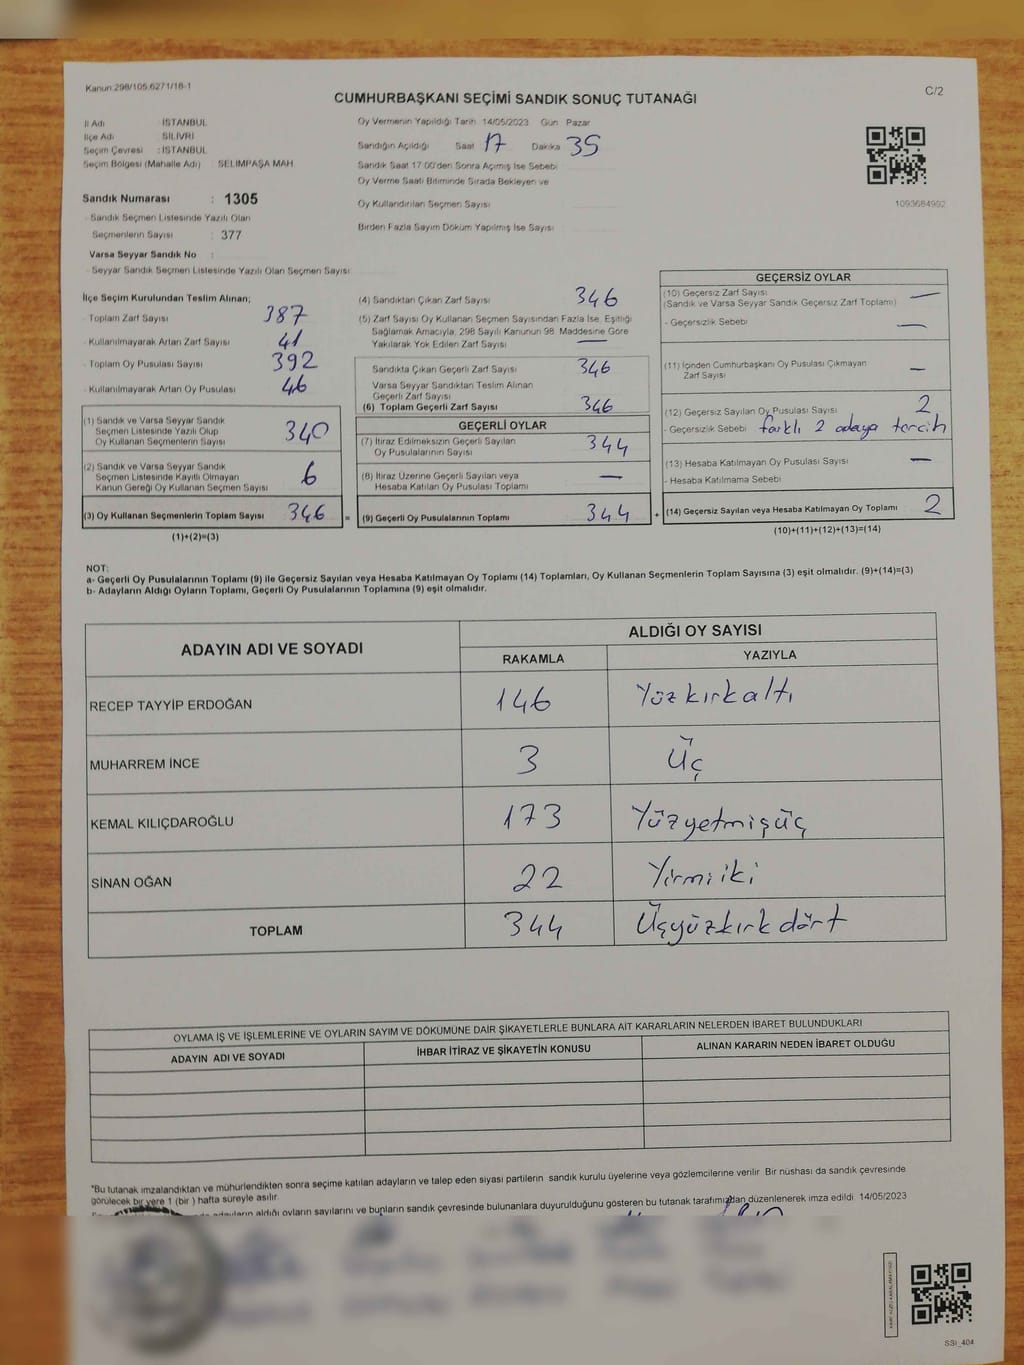 Kanun 298/105,6271/18-1
C/2
CUMHURBAŞKANI SEÇİMİ SANDIK SONUÇ TUTANAĞI
İl Adı : İSTANBUL
İlçe Adı : SİLİVRİ
Seçim Çevresi : İSTANBUL
Seçim Bölgesi (Mahalle Adı) : SELİMPAŞA MAH
Oy Vermenin Yapıldığı Tarih 14/05/2023 Gün Pazar
Sandığın Açıldığı Saat 17 Dakika 35
Sandık Saat 17:00'den Sonra Açımış İse Sebebi
Oy Verme Saati Bitiminde Sırada Bekleyen ve
Oy Kullandırılan Seçmen Sayısı
Birden Fazla Sayım Döküm Yapılmış İse Sayısı
1093684992
Sandık Numarası : 1305
- Sandık Seçmen Listesinde Yazılı Olan
Seçmenlerin Sayısı : 377
Varsa Seyyar Sandık No :
- Seyyar Sandık Seçmen Listesinde Yazılı Olan Seçmen Sayısı:
İlçe Seçim Kurulundan Teslim Alınan;
- Toplam Zarf Sayısı 387
- Kullanılmayarak Artan Zarf Sayısı 41
- Toplam Oy Pusulası Sayısı 392
- Kullanılmayarak Artan Oy Pusulası 46
(1) Sandık ve Varsa Seyyar Sandık
Seçmen Listesinde Yazılı Olup
Oy Kullanan Seçmenlerin Sayısı 340
(2) Sandık ve Varsa Seyyar Sandık
Seçmen Listesinde Kayıtlı Olmayan
Kanun Gereği Oy Kullanan Seçmen Sayısı 6
(3) Oy Kullanan Seçmenlerin Toplam Sayısı 346 =
(1)+(2)=(3)
(4) Sandıktan Çıkan Zarf Sayısı 346
(5) Zarf Sayısı Oy Kullanan Seçmen Sayısından Fazla İse, Eşitliği
Sağlamak Amacıyla, 298 Sayılı Kanunun 98. Maddesine Göre
Yakılarak Yok Edilen Zarf Sayısı —
Sandıkta Çıkan Geçerli Zarf Sayısı 346
Varsa Seyyar Sandıktan Teslim Alınan
Geçerli Zarf Sayısı
(6) Toplam Geçerli Zarf Sayısı 346
GEÇERLİ OYLAR
(7) İtiraz Edilmeksizin Geçerli Sayılan
Oy Pusulalarının Sayısı 344
(8) İtiraz Üzerine Geçerli Sayılan veya
Hesaba Katılan Oy Pusulası Toplamı —
(9) Geçerli Oy Pusulalarının Toplamı 344 +
GEÇERSİZ OYLAR
(10) Geçersiz Zarf Sayısı —
(Sandık ve Varsa Seyyar Sandık Geçersiz Zarf Toplamı)
- Geçersizlik Sebebi —
(11) İçinden Cumhurbaşkanı Oy Pusulası Çıkmayan
Zarf Sayısı —
(12) Geçersiz Sayılan Oy Pusulası Sayısı 2
- Geçersizlik Sebebi farklı 2 adaya tercih
(13) Hesaba Katılmayan Oy Pusulası Sayısı —
- Hesaba Katılmama Sebebi
(14) Geçersiz Sayılan veya Hesaba Katılmayan Oy Toplamı 2
(10)+(11)+(12)+(13)=(14)
NOT:
a- Geçerli Oy Pusulalarının Toplamı (9) ile Geçersiz Sayılan veya Hesaba Katılmayan Oy Toplamı (14) Toplamları, Oy Kullanan Seçmenlerin Toplam Sayısına (3) eşit olmalıdır. (9)+(14)=(3)
b- Adayların Aldığı Oyların Toplamı, Geçerli Oy Pusulalarının Toplamına (9) eşit olmalıdır.
ADAYIN ADI VE SOYADI
ALDIĞI OY SAYISI
RAKAMLA YAZIYLA
RECEP TAYYİP ERDOĞAN 146 Yüzkırkaltı
MUHARREM İNCE 3 Üç
KEMAL KILIÇDAROĞLU 173 Yüzyetmişüç
SİNAN OĞAN 22 Yirmiiki
TOPLAM 344 Üçyüzkırkdört
OYLAMA İŞ VE İŞLEMLERİNE VE OYLARIN SAYIM VE DÖKÜMÜNE DAİR ŞİKAYETLERLE BUNLARA AİT KARARLARIN NELERDEN İBARET BULUNDUKLARI
ADAYIN ADI VE SOYADI İHBAR İTİRAZ VE ŞİKAYETİN KONUSU ALINAN KARARIN NEDEN İBARET OLDUĞU
*Bu tutanak imzalandıktan ve mühürlendikten sonra seçime katılan adayların ve talep eden siyasi partilerin sandık kurulu üyelerine veya gözlemcilerine verilir. Bir nüshası da sandık çevresinde
görülecek bir yere 1 (bir) hafta süreyle asılır.
adayların aldığı oyların sayılarını ve bunların sandık çevresinde bulunanlara duyurulduğunu gösteren bu tutanak tarafımızdan düzenlenerek imza edildi. 14/05/2023
SSI_404